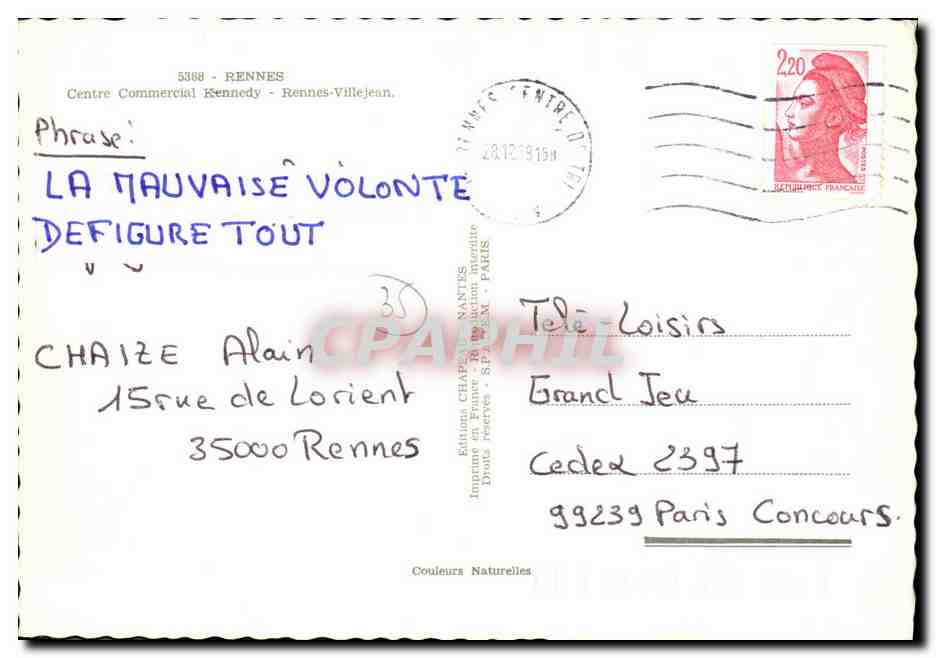 5388 - RENNES
Centre Commercial Kennedy - Rennes-Villejean.
Phrase:
LA MAUVAISE VOLONTE
DEFIGURE TOUT
35
CHAIZE Alain
15 rue de Lorient
35000 Rennes
Editions CHAPEAU - NANTES
Imprimé en France - Reproduction interdite
Droits réservés - S.P.A.D.E.M. - PARIS
RENNES CENTRE DE TRI
2,20
POSTES
REPUBLIQUE FRANÇAISE
Télé-Loisirs
Grand Jeu
Cedex 2397
99239 Paris Concours.
Couleurs Naturelles
CPAPHIL